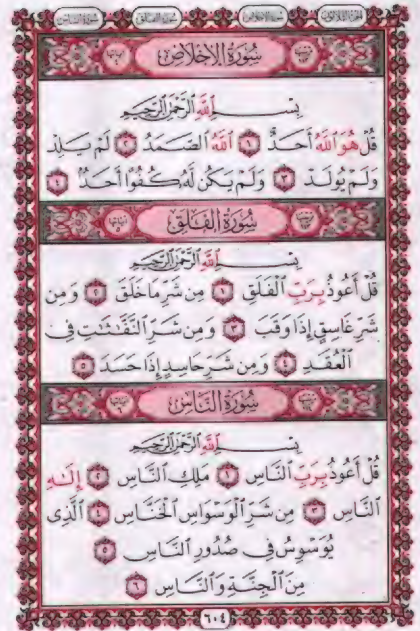 الجزء الثلاثون سورة الإخلاص سورة الفلق سورة الناس
سُورَةُ الإِخْلَاصِ
بِسْمِ اللَّهِ الرَّحْمَٰنِ الرَّحِيمِ
قُلْ هُوَ اللَّهُ أَحَدٌ ١ اللَّهُ الصَّمَدُ ٢ لَمْ يَلِدْ
وَلَمْ يُولَدْ ٣ وَلَمْ يَكُن لَّهُ كُفُوًا أَحَدٌ ٤
سُورَةُ الفَلَقِ
بِسْمِ اللَّهِ الرَّحْمَٰنِ الرَّحِيمِ
قُلْ أَعُوذُ بِرَبِّ الْفَلَقِ ١ مِن شَرِّ مَا خَلَقَ ٢ وَمِن
شَرِّ غَاسِقٍ إِذَا وَقَبَ ٣ وَمِن شَرِّ النَّفَّاثَاتِ فِي
الْعُقَدِ ٤ وَمِن شَرِّ حَاسِدٍ إِذَا حَسَدَ ٥
سُورَةُ النَّاسِ
بِسْمِ اللَّهِ الرَّحْمَٰنِ الرَّحِيمِ
قُلْ أَعُوذُ بِرَبِّ النَّاسِ ١ مَلِكِ النَّاسِ ٢ إِلَٰهِ
النَّاسِ ٣ مِن شَرِّ الْوَسْوَاسِ الْخَنَّاسِ ٤ الَّذِي
يُوَسْوِسُ فِي صُدُورِ النَّاسِ ٥
مِنَ الْجِنَّةِ وَالنَّاسِ ٦
٦٠٤